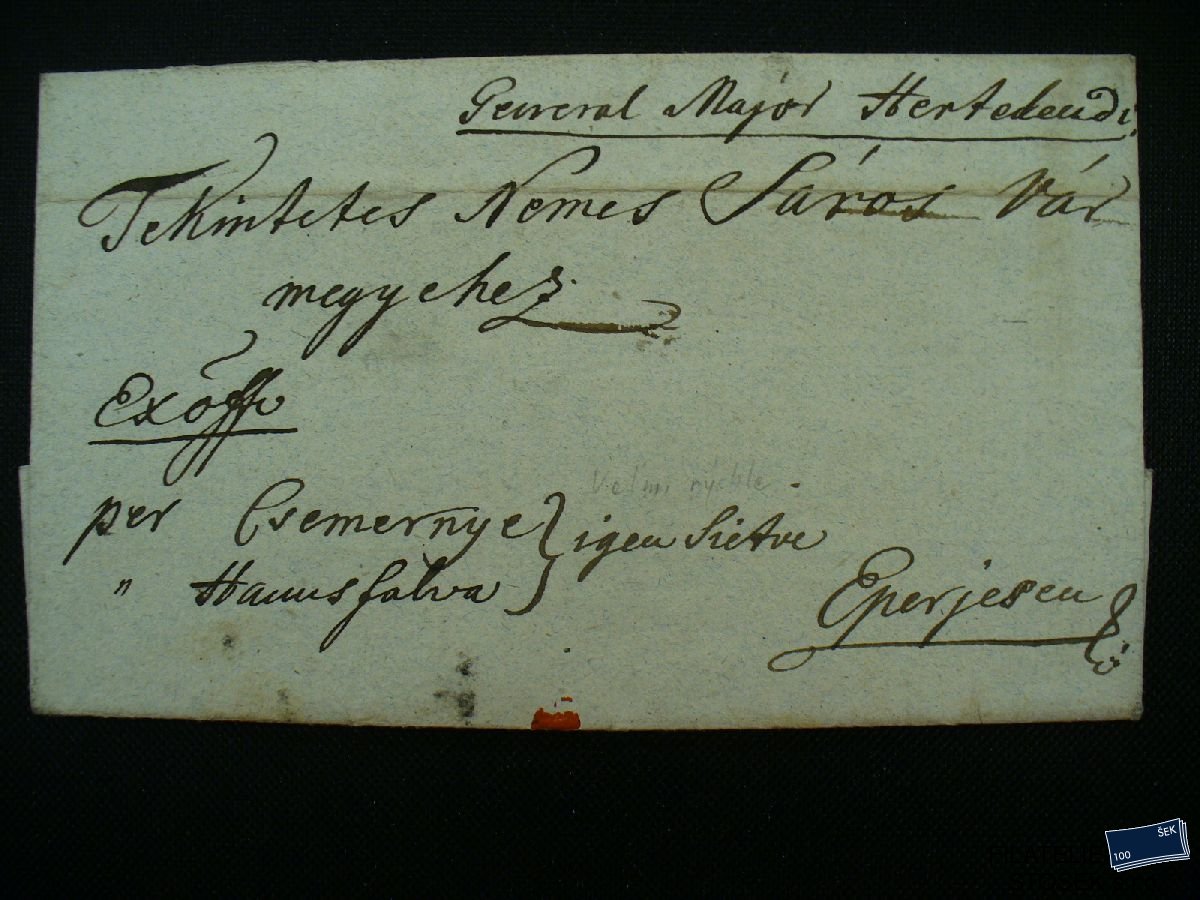 General Major Hertelendi
Tekintetes Nemes Sáros Vár
megyehez
Exoffo
Veľmi rýchle
per Csemernye } igen Sietve
" Hanusfalva
Eperjesen
ŠEK
100